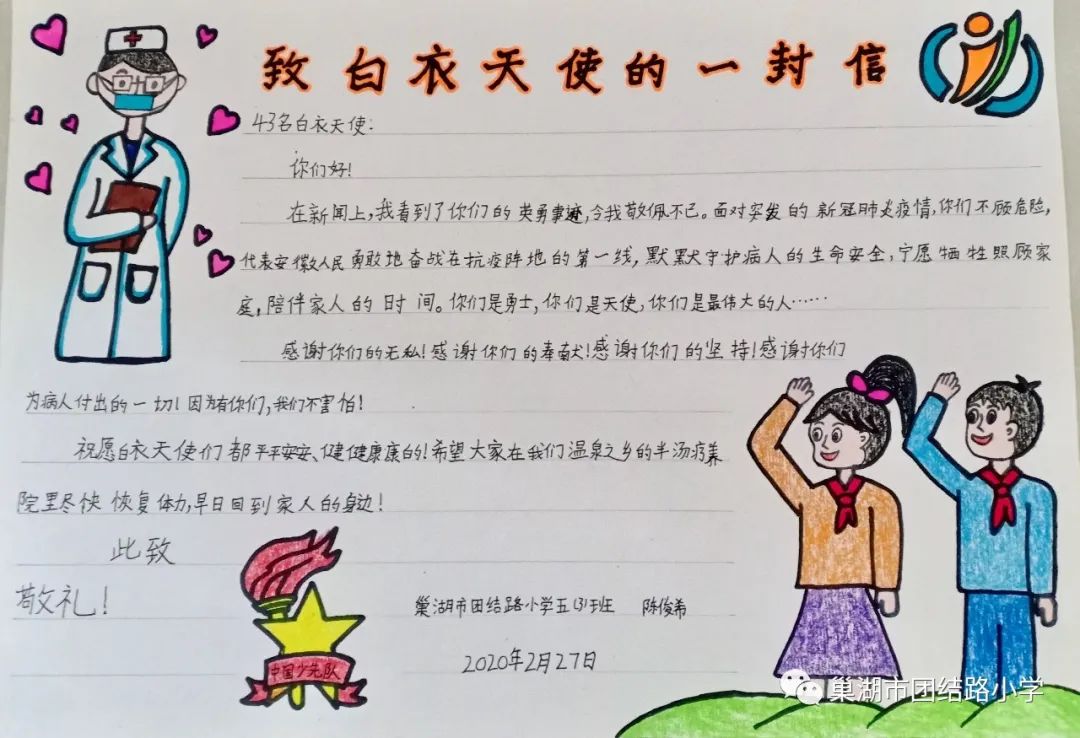 致白衣天使的一封信
43名白衣天使:
你们好!
在新闻上,我看到了你们的英勇事迹,令我敬佩不已。面对突发的新冠肺炎疫情,你们不顾危险,
代表安徽人民勇敢地奋战在抗疫阵地的第一线,默默守护病人的生命安全,宁愿牺牲照顾家
庭,陪伴家人的时间。你们是勇士,你们是天使,你们是最伟大的人……
感谢你们的无私!感谢你们的奉献!感谢你们的坚持!感谢你们
为病人付出的一切!因为有你们,我们不害怕!
祝愿白衣天使们都平平安安、健健康康的!希望大家在我们温泉之乡的半汤疗养
院里尽快恢复体力,早日回到家人的身边!
此致
敬礼!
巢湖市团结路小学五(3)班 陈俊希
2020年2月27日
中国少先队
巢湖市团结路小学